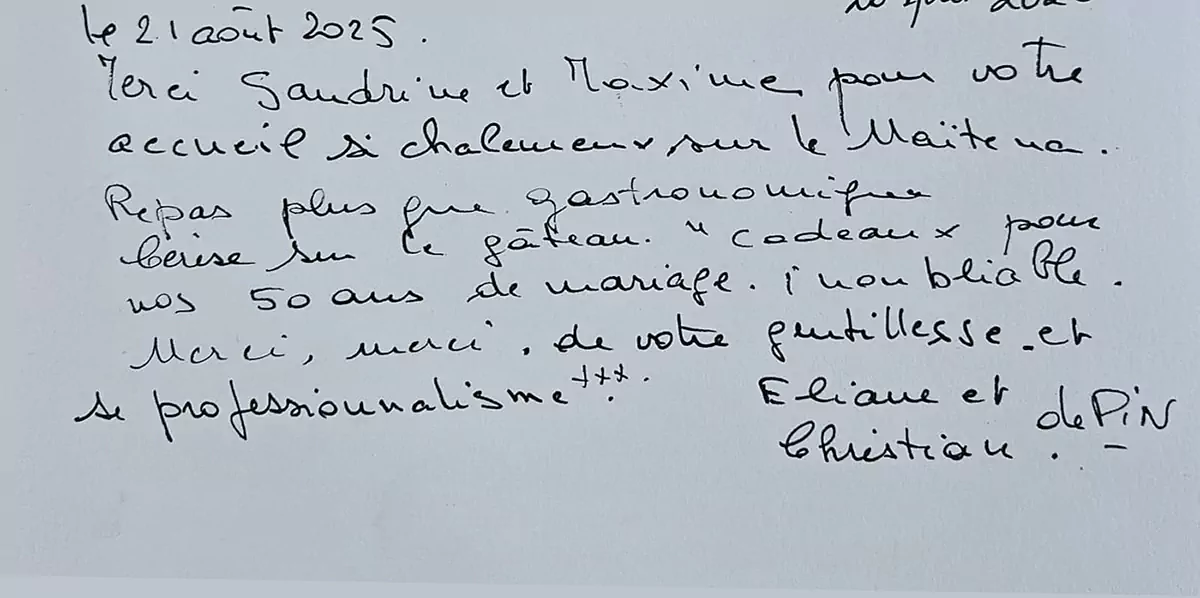 le 21 août 2025.
Merci Sandrine et Maxime pour votre
accueil si chaleureux sur le Maïtena.
Repas plus que gastronomique
Cerise sur le gâteau. " cadeaux pour
nos 50 ans de mariage. inoubliable.
Merci, merci, de votre gentillesse et
se professionnalisme +++.
Eliane et de PiN
Christian.